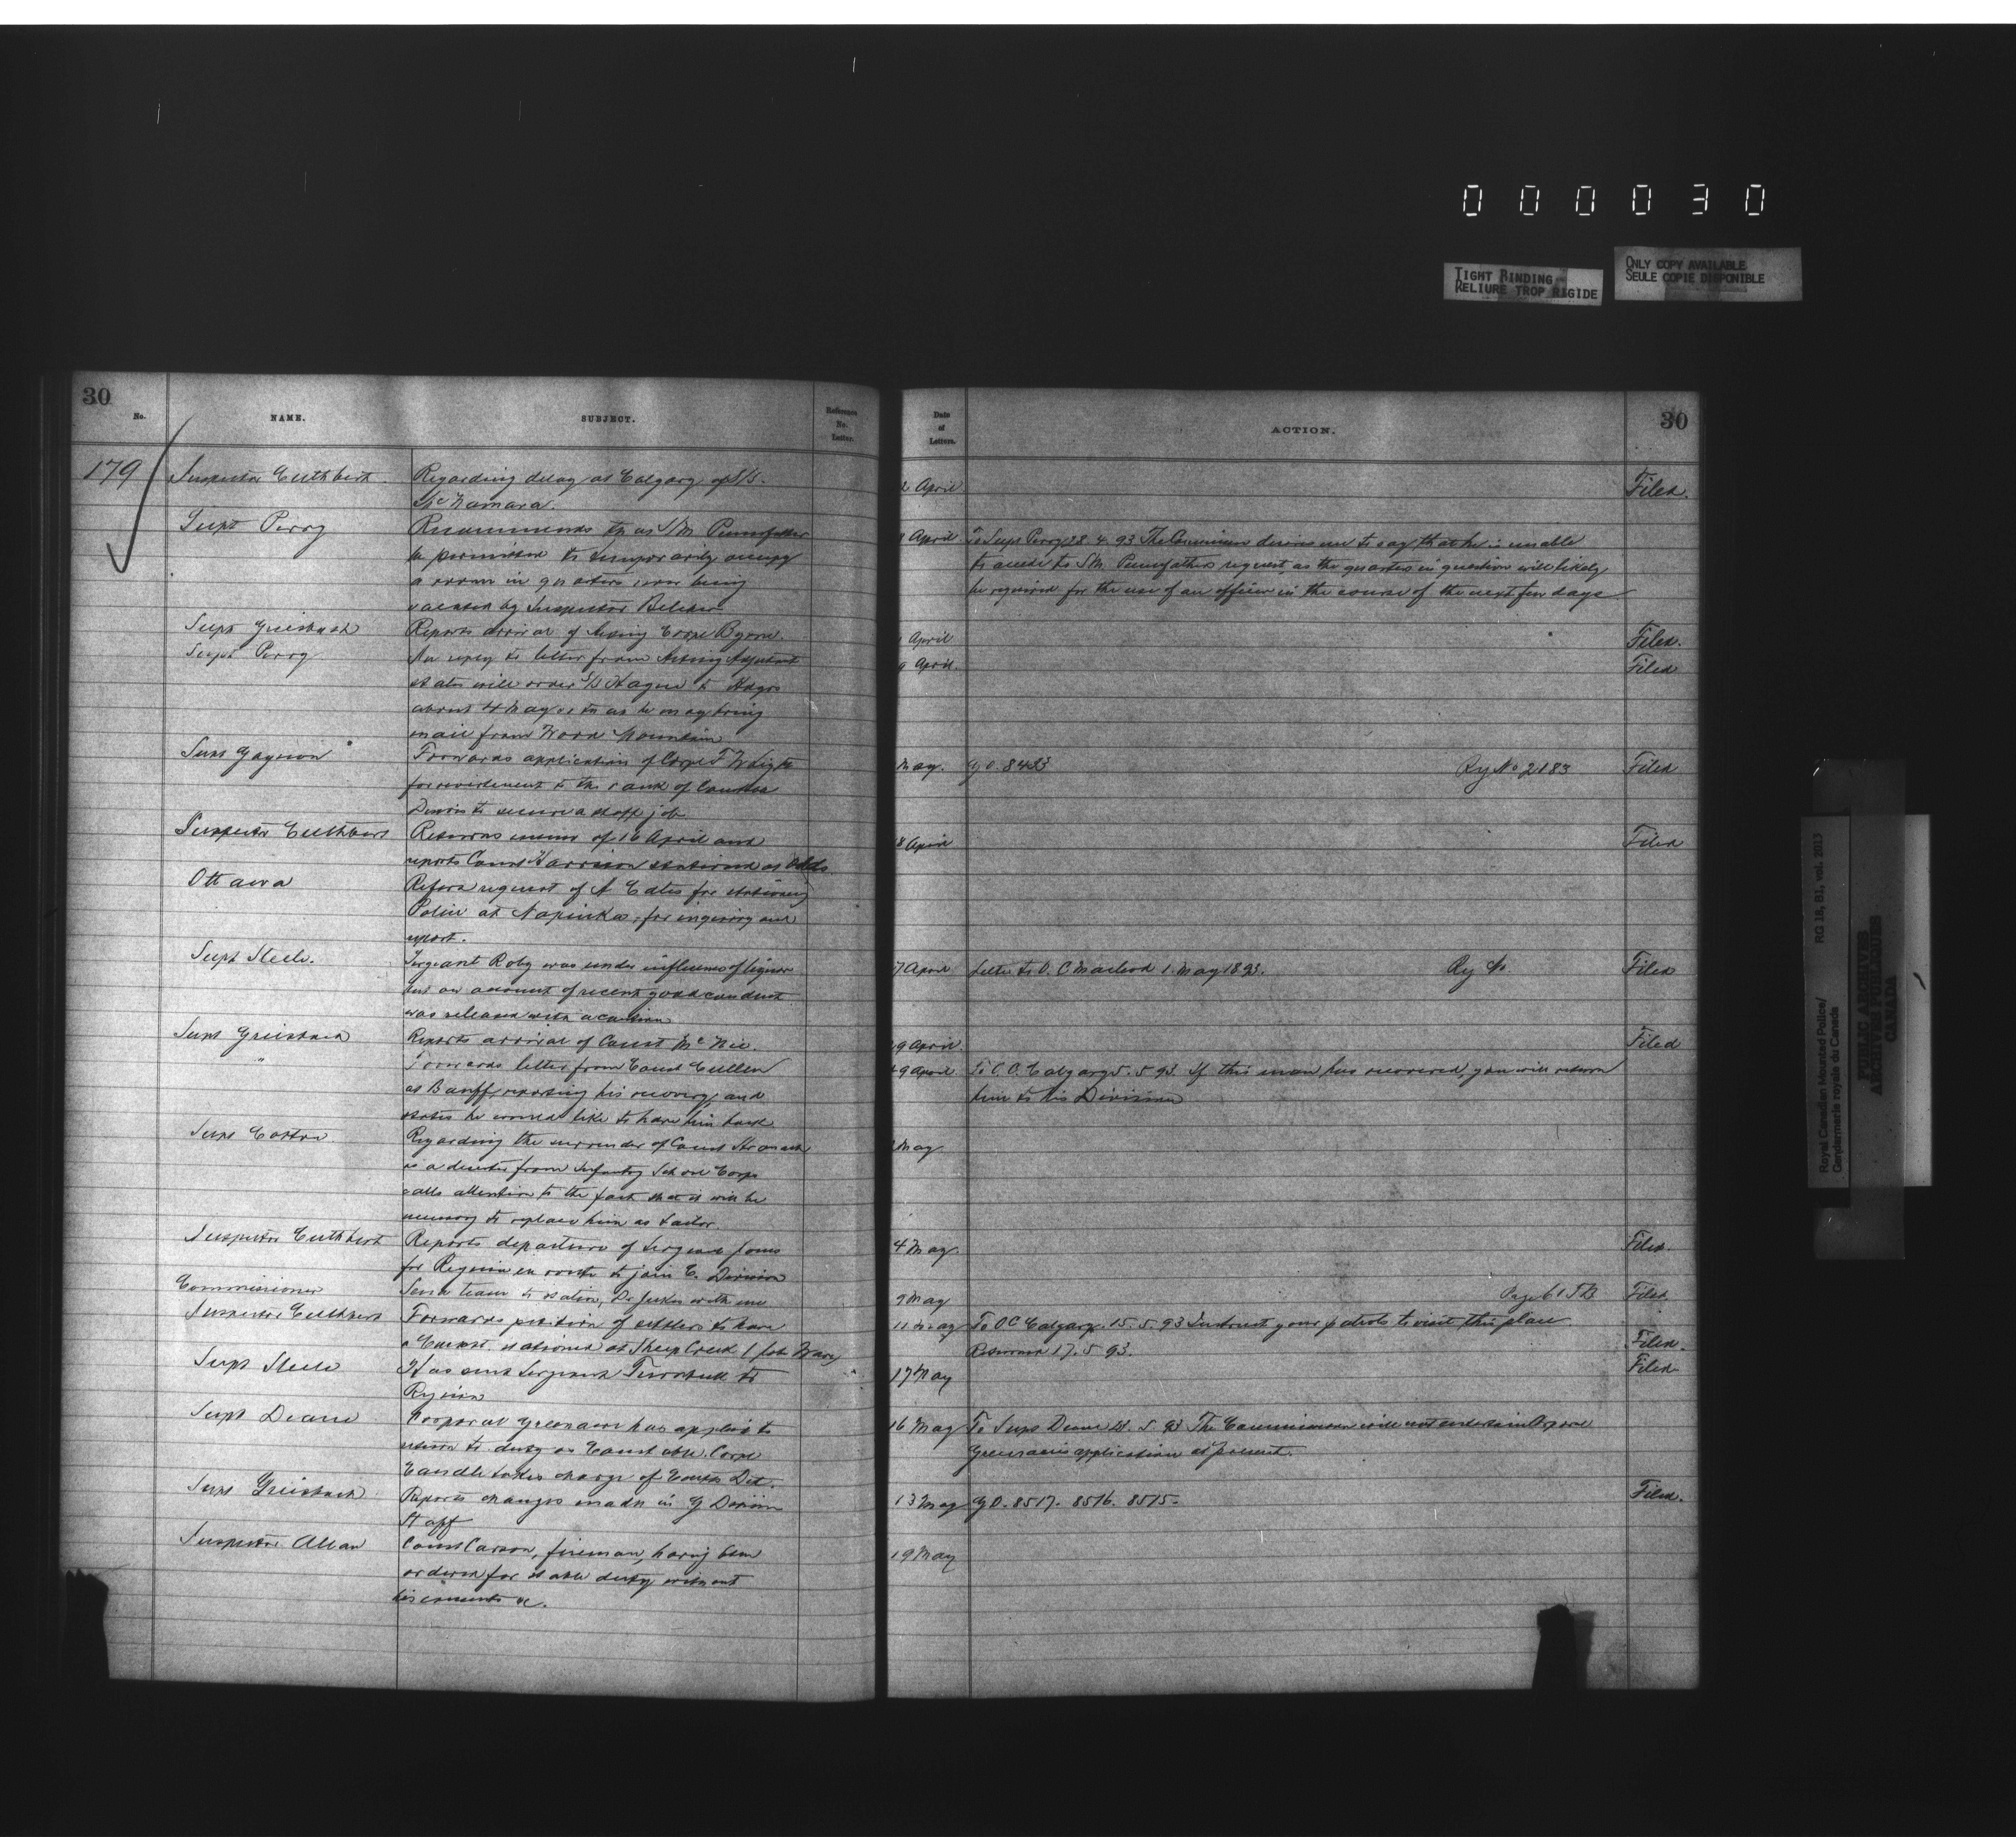 0 0 0 0 3 0
TIGHT BINDING
RELIURE TROP RIGIDE
ONLY COPY AVAILABLE
SEULE COPIE DISPONIBLE
30
No.
NAME.
SUBJECT.
Reference
No.
Letter.
179
Inspector Cuthbert
Regarding delay at Calgary of S/S.
McNamara.
Supt Perry
Recommends that S/M Pennefather
be permitted to temporarily occupy
a room in quarters now being
vacated by Inspector Belcher
Supt Griesbach
Reports arrival of Acting Corpl Byrne.
Supt Perry
In reply to letter from Acting Adjutant
states will order S/S Hague to Hdqrs
about 4 May so that he may bring
mail from Wood Mountain
Supt Gagnon
Forwards application of Corpl
for reverlement to the rank of Constble
Desires to secure a staff job
Inspector Cuthbert
Returns memo of 16 April and
reports Const Harrison stationed at Olds
Ottawa
Refers request of A Cates for stationing
Police at Napinka, for inquiry and
report.
Supt Steele.
Sergeant Roby was under influence of liquor
but on account of recent good conduct
was released with a caution
Supt Griesbach
Reports arrival of Const McNee.
"
Forwards letter from Const Cullen
at Banff, reporting his recovery, and
states he would like to have him back
Supt Cotton
Regarding the surrender of Const Stronach
as a deserter from Infantry School Corps
calls attention to the fact that it will be
necessary to replace him as tailor
Inspector Cuthbert
Reports departure of Sergeant Jones
for Regina en route to join E. Division
Commissioner
Send team to station, Dr Jukes with me
Inspector Cuthbert
Forwards petition of settlers to have
a Const. stationed at Sheep Creek
Supt Steele
Has sent Sergeant Turnbull to
Regina
Supt Deane
Corporal Greenacre has applied to
return to duty as Constable. Corpl
takes charge of Coutts Det.
Supt Griesbach
Reports changes made in G Division
Staff
Inspector Allan
Const Carson, fireman, having been
ordered for stable duty without
his consent &c.
Date
of
Letters.
ACTION.
30
2 April
Filed.
April
To Supt Perry 28. 4. 93 The Commissioner desires me to say that he is unable
to accede to S/M. Pennefathers request, as the quarters in question will likely
be required for the use of an officer in the course of the next few days
April
Filed.
9 April
Filed
May.
G O. 8423
Reg No 2183
Filed
8 April
Filed
7 April
Letter to O. C Macleod 1. May 1893.
Reg No
Filed
9 April.
Filed
9 April
To O. C. Calgary 5. 5. 93. If this man has recovered, you will return
him to his Division
May
4 May.
Filed.
9 May
Page 61 TB
Filed.
11 May
To OC Calgary. 15. 5. 93 Instruct your patrols to visit this place
Returned 17. 5 93.
Filed.
17 May
Filed.
16 May
To Supt Deane 5 93 The Commissioner will not entertain Corporal
Greenacres application at present.
13 May
G O. 8517. 8516. 8515.
Filed.
19 May
Royal Canadian Mounted Police/
Gendarmerie royale du Canada
RG 18, B1, vol. 2013
PUBLIC ARCHIVES
ARCHIVES PUBLIQUES
CANADA